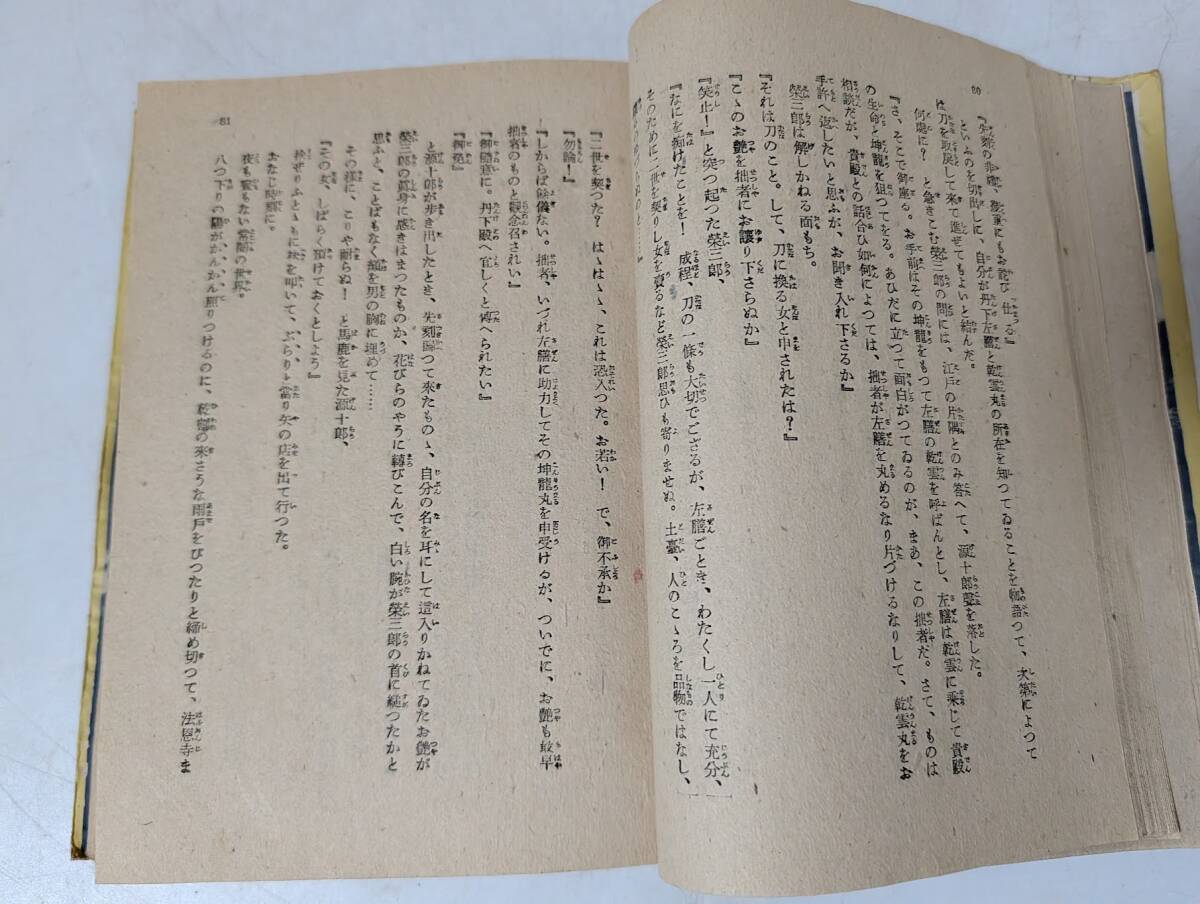 80
『先般の非礼、幾重にもお詫び仕る』
といふのを切出しに、自分が丹下左膳と乾雲丸の所在を知つてゐることを物語つて、次第によつて
は刀を取戻して来て進ぜてもよいと結んだ。
何處に？　と急きこむ榮三郎の問には、江戸の片隅とのみ答へて、源十郎聲を落した。
『さ、そこで御座る。お手前はその坤龍をもつて左膳の乾雲を呼ばんとし、左膳は乾雲に乗じて貴殿
の生命と坤龍を狙つてをる。あひだに立つて面白がつてゐるのが、まあ、この拙者だ。さて、ものは
相談だが、貴殿との話合ひ如何によつては、拙者が左膳を丸めるなり片づけるなりして、乾雲丸をお
手許へ返したいと思ふが、お聞き入れ下さるか』
榮三郎は解しかねる面もち。
『それは刀のこと。して、刀に換る女と申されたは？』
『こゝのお艶を拙者にお譲り下さらぬか』
『笑止！』と突つ起つた榮三郎、
『なにを痴けたことを！　成程、刀の一條も大切でござるが、左膳ごとき、わたくし一人にて充分、
そのために二世を契りし女を賣るなど榮三郎思ひも寄りませぬ。土臺、人のこゝろを品物ではなし、
『二世を契つた？　はゝはゝゝ、これは恐入つた。お若い！　で、御不承か』
『勿論！』
『しからば餘儀ない。拙者、いづれ左膳に助力してその坤龍丸を申受けるが、ついでに、お艶も最早
拙者のものと觀念召されい』
『御隨意に。丹下殿へ宜しくと傳へられたい』
『御免』
と源十郎が歩き出したとき、先刻歸つて來たものゝ、自分の名を耳にして這入りかねてゐたお艶が
榮三郎の眞身に感きはまつたものか、花びらのやうに轉びこんで、白い腕が榮三郎の首に縋つたかと
思ふと、ことばもなく顔を男の胸に埋めて……
その様に、こりや耐らぬ！　と馬鹿を見た源十郎、
『その女、しばらく預けておくとしよう』
捨ぜりふとゝもに袂を叩いて、ぶらりと當り矢の店を出て行つた。
おなじ時刻に。
夜も晝もない常闇の世界。
八つ下りの陽がかんかん照りつけるのに、乾雲の来さうな雨戸をぴつたりと締め切つて、法恩寺ま
81